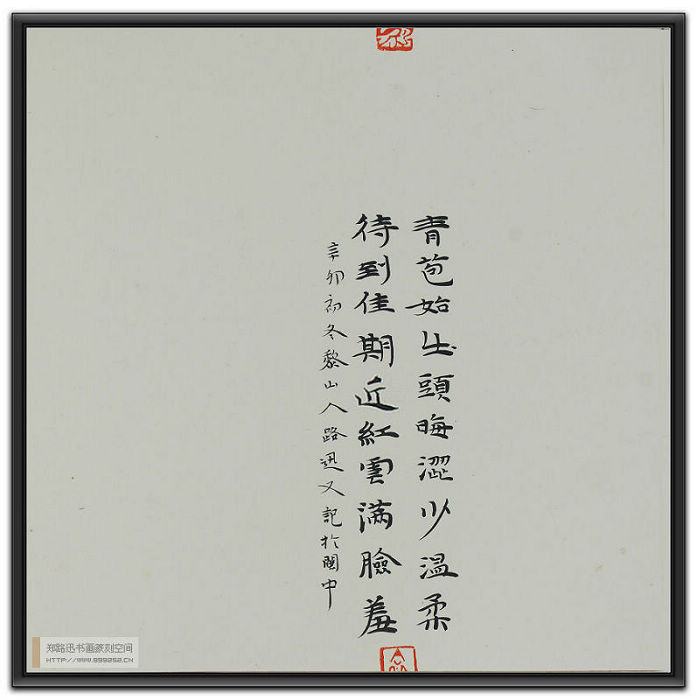 青苞始出頭晦澀少溫柔
待到佳期近紅雲滿臉羞
辛卯初冬黎山人路迅又記於閩中
郑路迅书画篆刻空间
HTTP://WWW.999252.CN